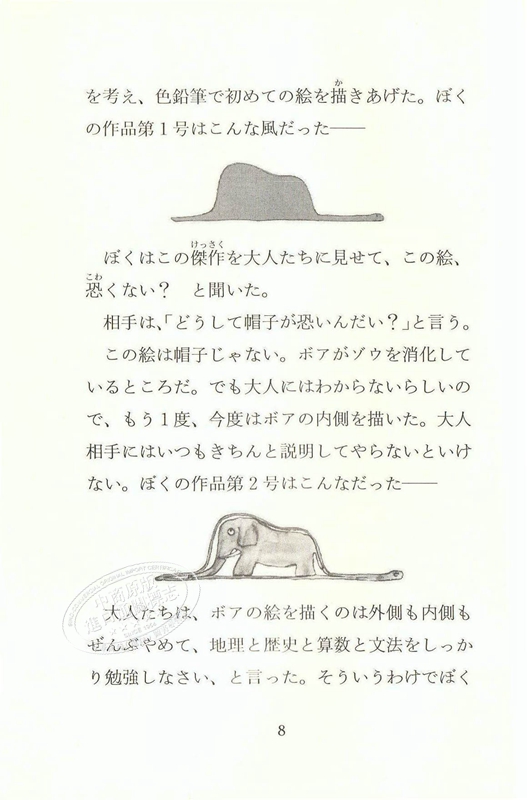 を考え、色鉛筆で初めての絵を描きあげた。ぼく
の作品第1号はこんな風だった――
ぼくはこの傑作を大人たちに見せて、この絵、
恐くない？　と聞いた。
相手は、「どうして帽子が恐いんだい？」と言う。
この絵は帽子じゃない。ボアがゾウを消化して
いるところだ。でも大人にはわからないらしいの
で、もう1度、今度はボアの内側を描いた。大人
相手にはいつもきちんと説明してやらないといけ
ない。ぼくの作品第2号はこんなだった――
大人たちは、ボアの絵を描くのは外側も内側も
ぜんぶやめて、地理と歴史と算数と文法をしっか
り勉強しなさい、と言った。そういうわけでぼく
8